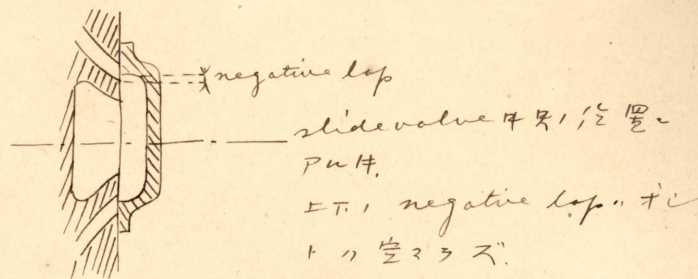 negative lap
slide valve 中央ノ位置ニ
アル時、
上下ノ negative lap ハ 等シ
トハ定マラズ.